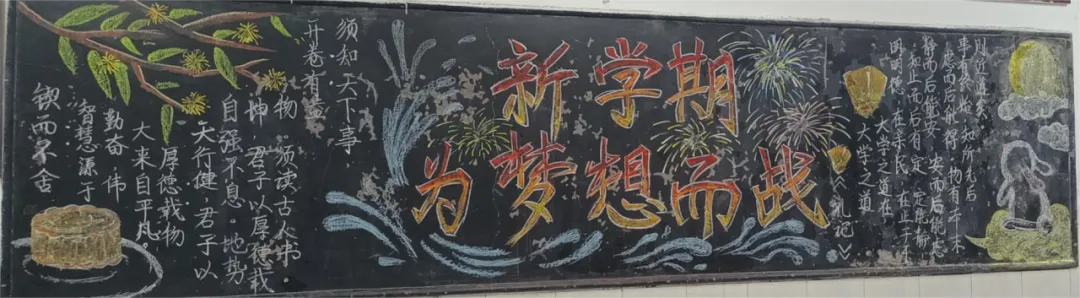 锲而不舍
智慧源于
勤奋 伟
大来自平凡。
厚德载物
天行健,君子以
自强不息。地势
坤,君子以厚德载
物。须读古人书
开卷有益
须知天下事
新学期
为梦想而战
《礼记》
大学之道
大学之道在
明明德 在亲民 在止于至
知止而后有定 定而后能静
静而后能安 安而后能虑
虑而后能得 物有本末
事有终始 知所先后
则近道矣